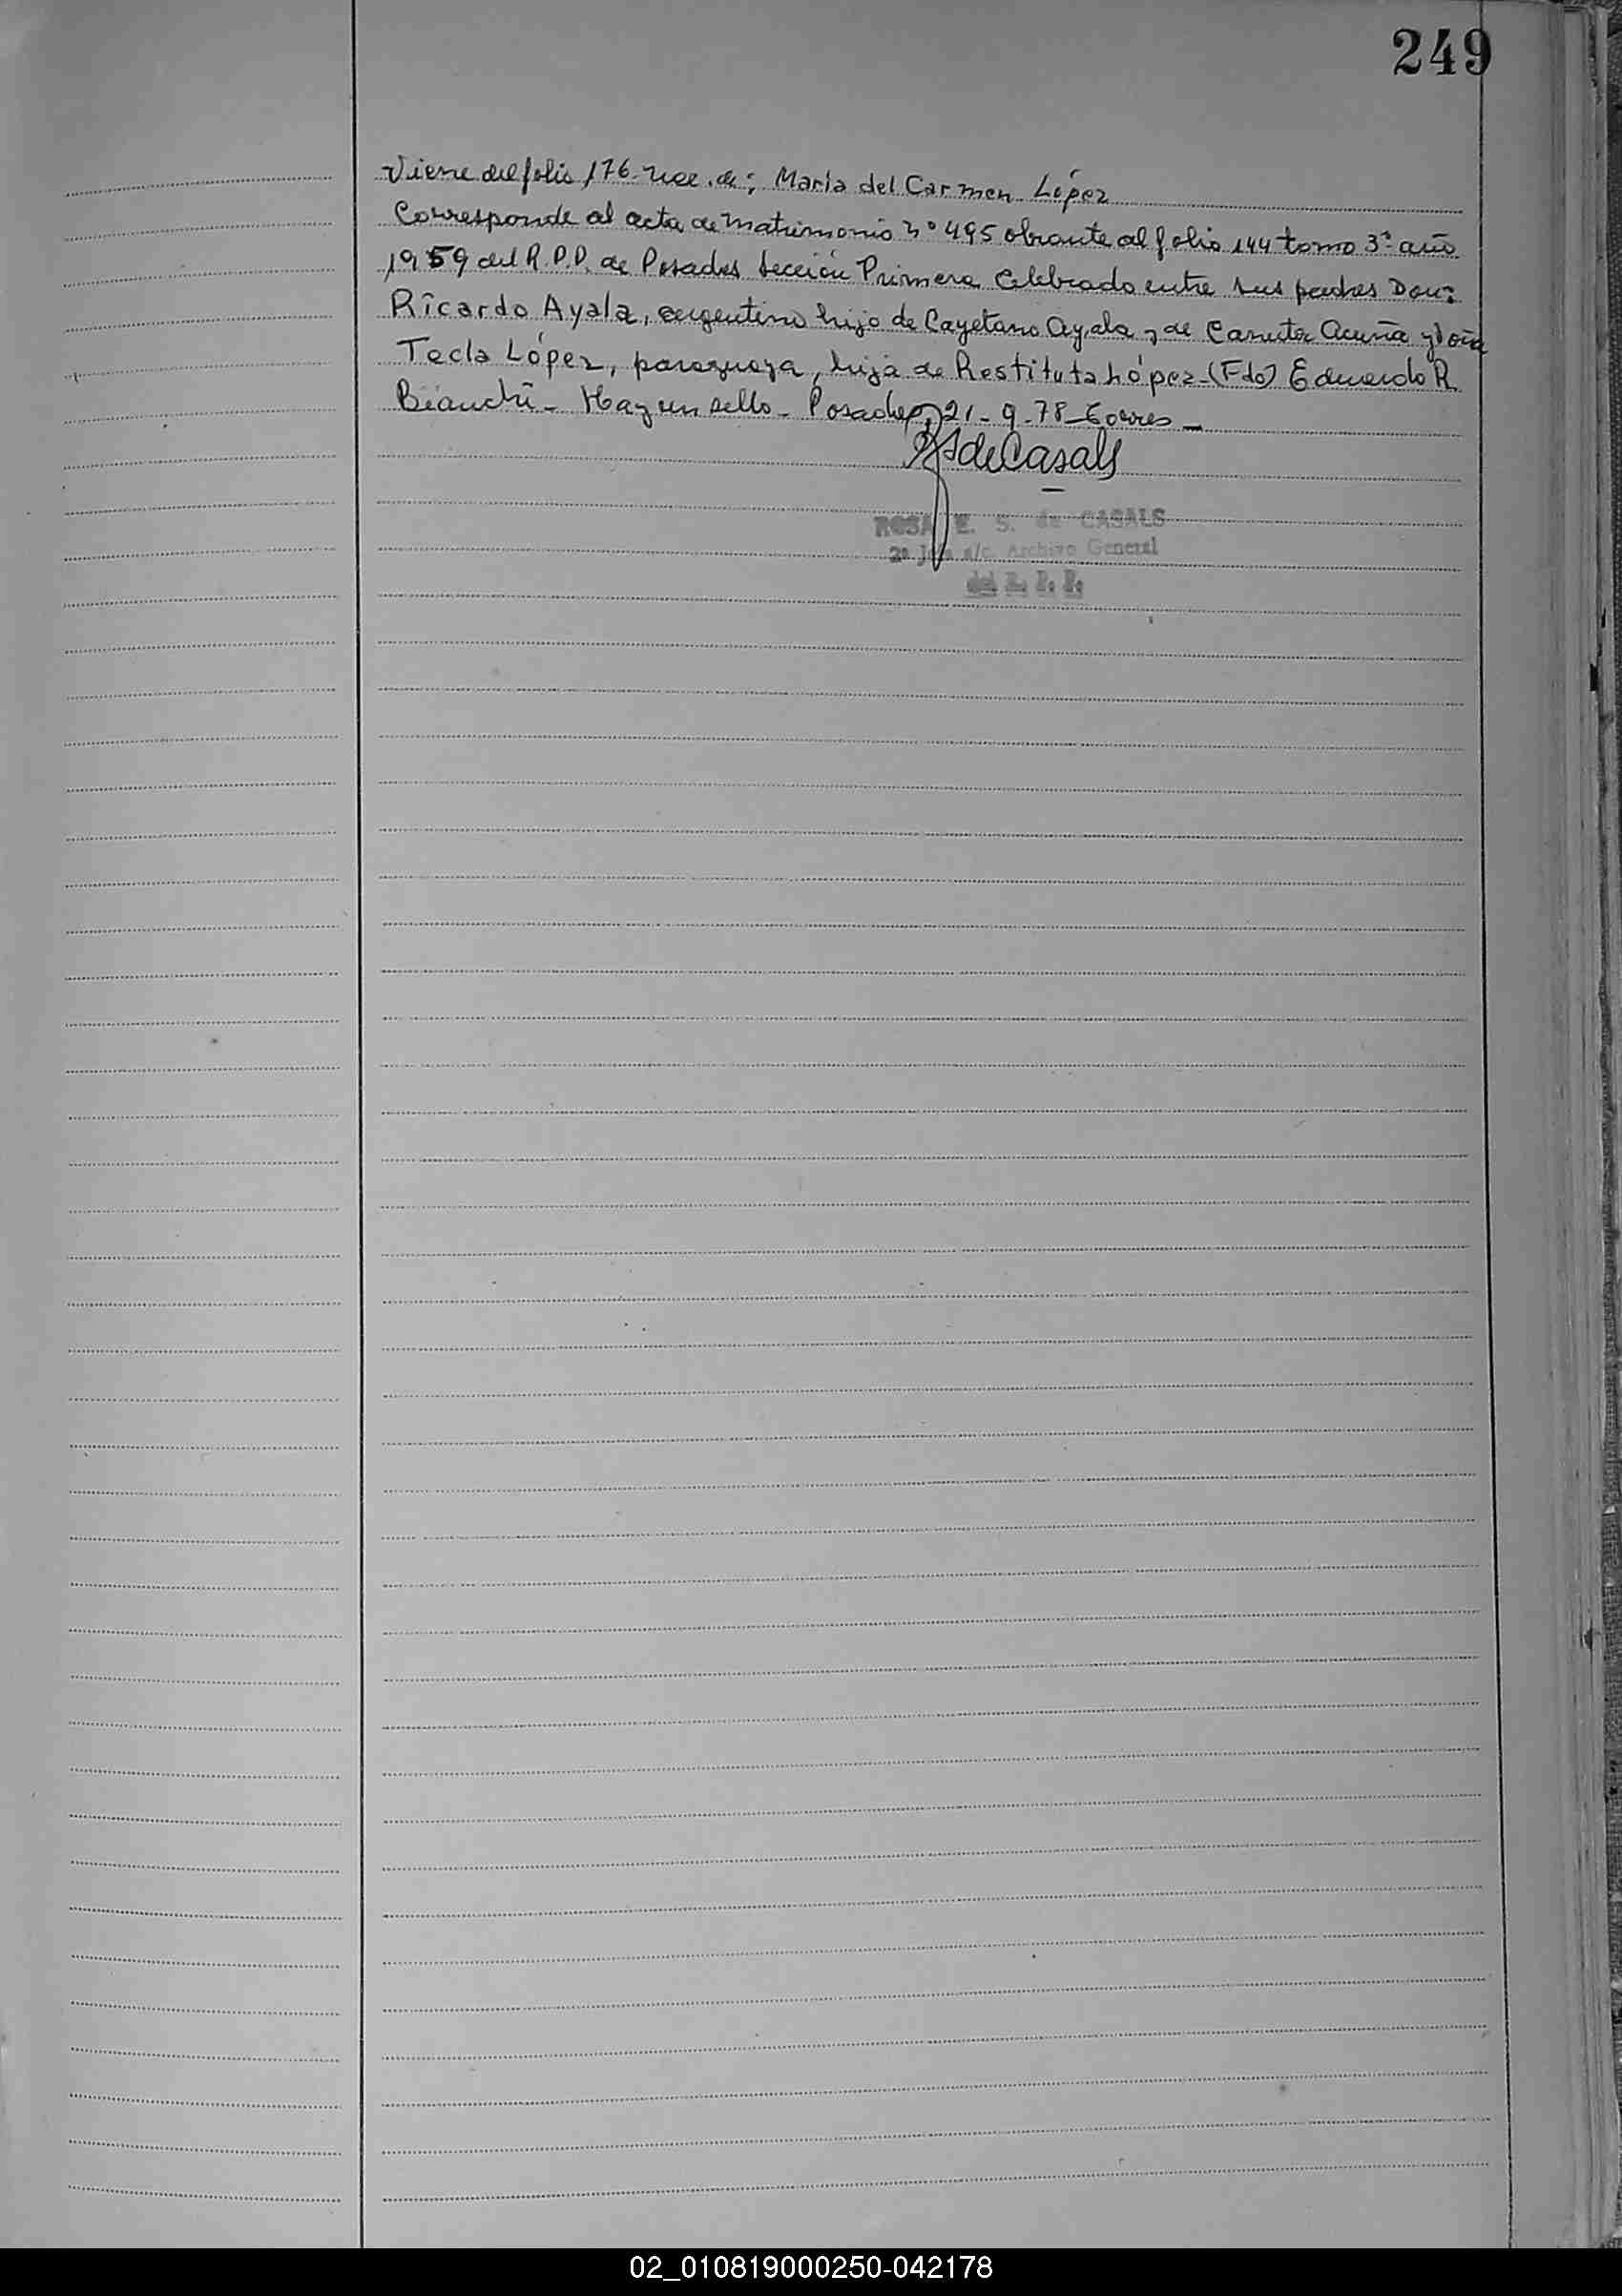 249
Viene del folio 176. nac. de; María del Carmen López
Corresponde al acta de matrimonio nº 495 obrante al folio 144 tomo 3º año
1959 del R.P.P. de Posadas Sección Primera Celebrado entre sus padres Don:
Ricardo Ayala, argentino hijo de Cayetano Ayala y de Canuta Acuña y doña
Tecla López, paraguaya, hija de Restituta López-(Fdo) Eduardo R.
Bianchi - Hay un sello - Posadas, 21-9-78-
deCasals
ROSA E. S. de CASALS
2º Jefe a/c. Archivo General
del R. P. P.
02_010819000250-042178